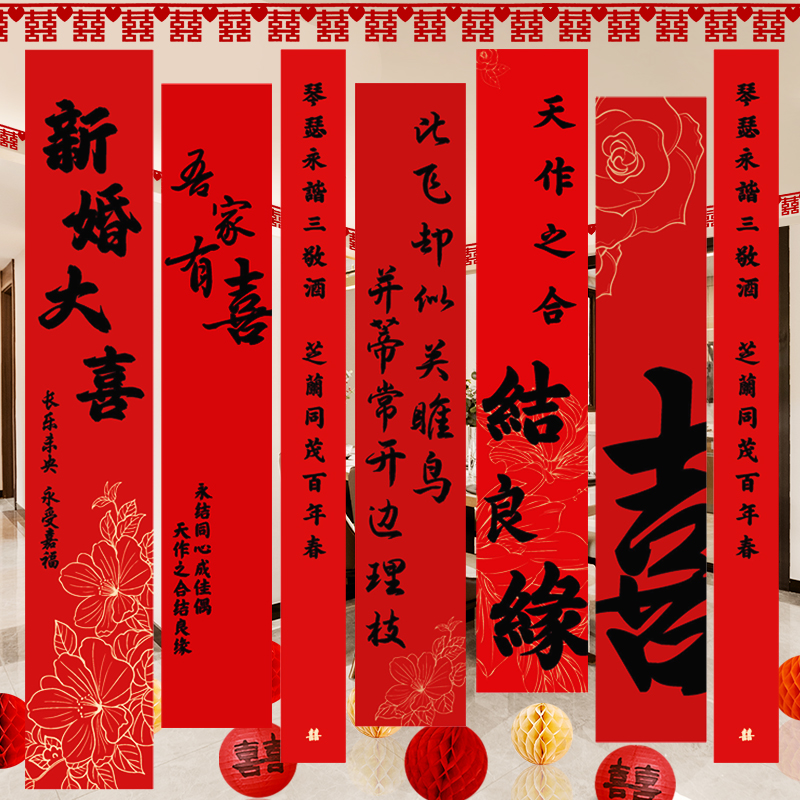 囍囍囍囍囍囍囍囍囍囍囍囍囍囍囍囍囍囍囍
新婚大喜
长乐未央 永受嘉福
吾家有喜
永结同心成佳偶
天作之合结良缘
琴瑟永諧三敬酒 芝蘭同茂百年春
囍
比飞却似关雎鸟
并蒂常开边理枝
天作之合
結良緣
喜
琴瑟永諧三敬酒 芝蘭同茂百年春
囍
囍
囍